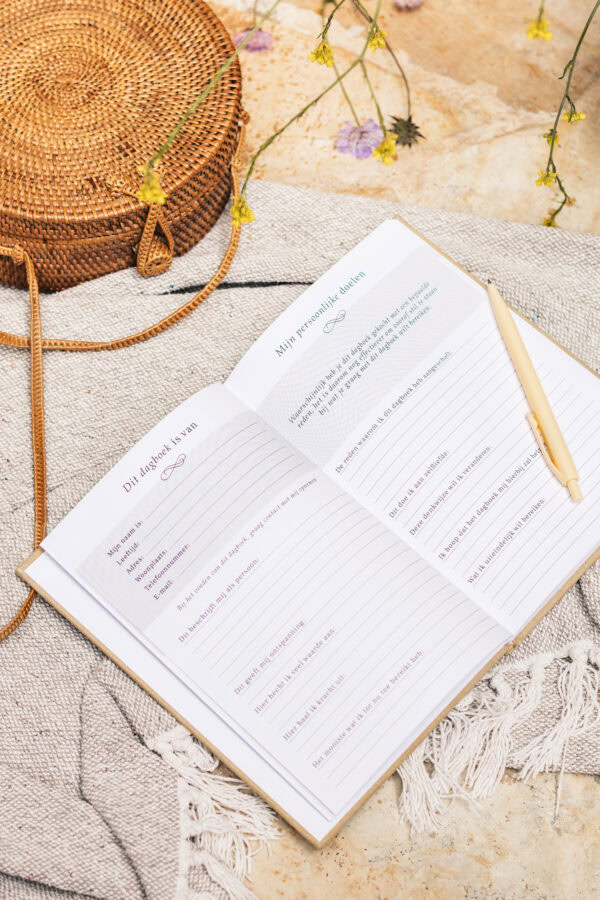 Dit dagboek is van
Mijn naam is:
Leeftijd:
Adres:
Woonplaats:
Telefoonnummer:
E-mail:
Bij het vinden van dit dagboek, graag contact met mij opnemen
Dit beschrijft mij als persoon:
Dit geeft mij ontspanning:
Hier hecht ik veel waarde aan:
Hier haal ik kracht uit:
Het mooiste wat ik tot nu toe bereikt heb:
Mijn persoonlijke doelen
Waarschijnlijk heb je dit dagboek gekocht met een bepaalde
reden, het is daarom nog effectiever om vooraf stil te staan
bij wat je graag met dit dagboek wilt bereiken.
De reden waarom ik dit dagboek heb aangeschaft:
Dit doe ik aan zelfliefde:
Deze denkwijze wil ik veranderen:
Ik hoop dat het dagboek mij hierbij zal
Wat ik uiteindelijk wil bereiken: